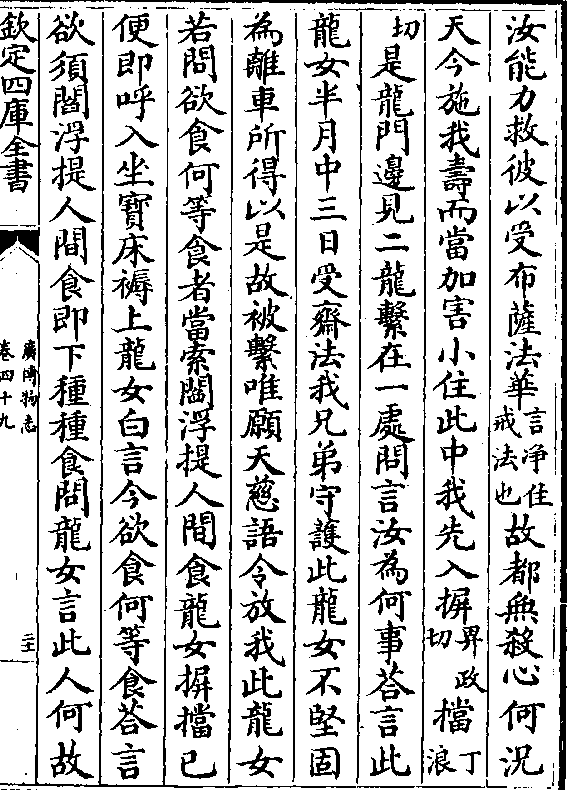 汝能力救彼以受布薩法華言淨住戒法也故都無殺心何况
天今施我壽而當加害小住此中我先入摒界政切檔丁浪
切是龍門邊見二龍繫在一處問言汝為何事答言此
龍女半月中三日受齋法我兄弟守護此龍女不堅固
為離車所得以是故被繫唯願天慈語令放我此龍女
若問欲食何等食者當索閻浮提人間食龍女摒擋已
便即呼入坐寶床褥上龍女白言今欲食何等食荅言
欲須閻浮提人間食即下種種食問龍女言此人何故
欽定四庫全書
廣博物志
卷四十九